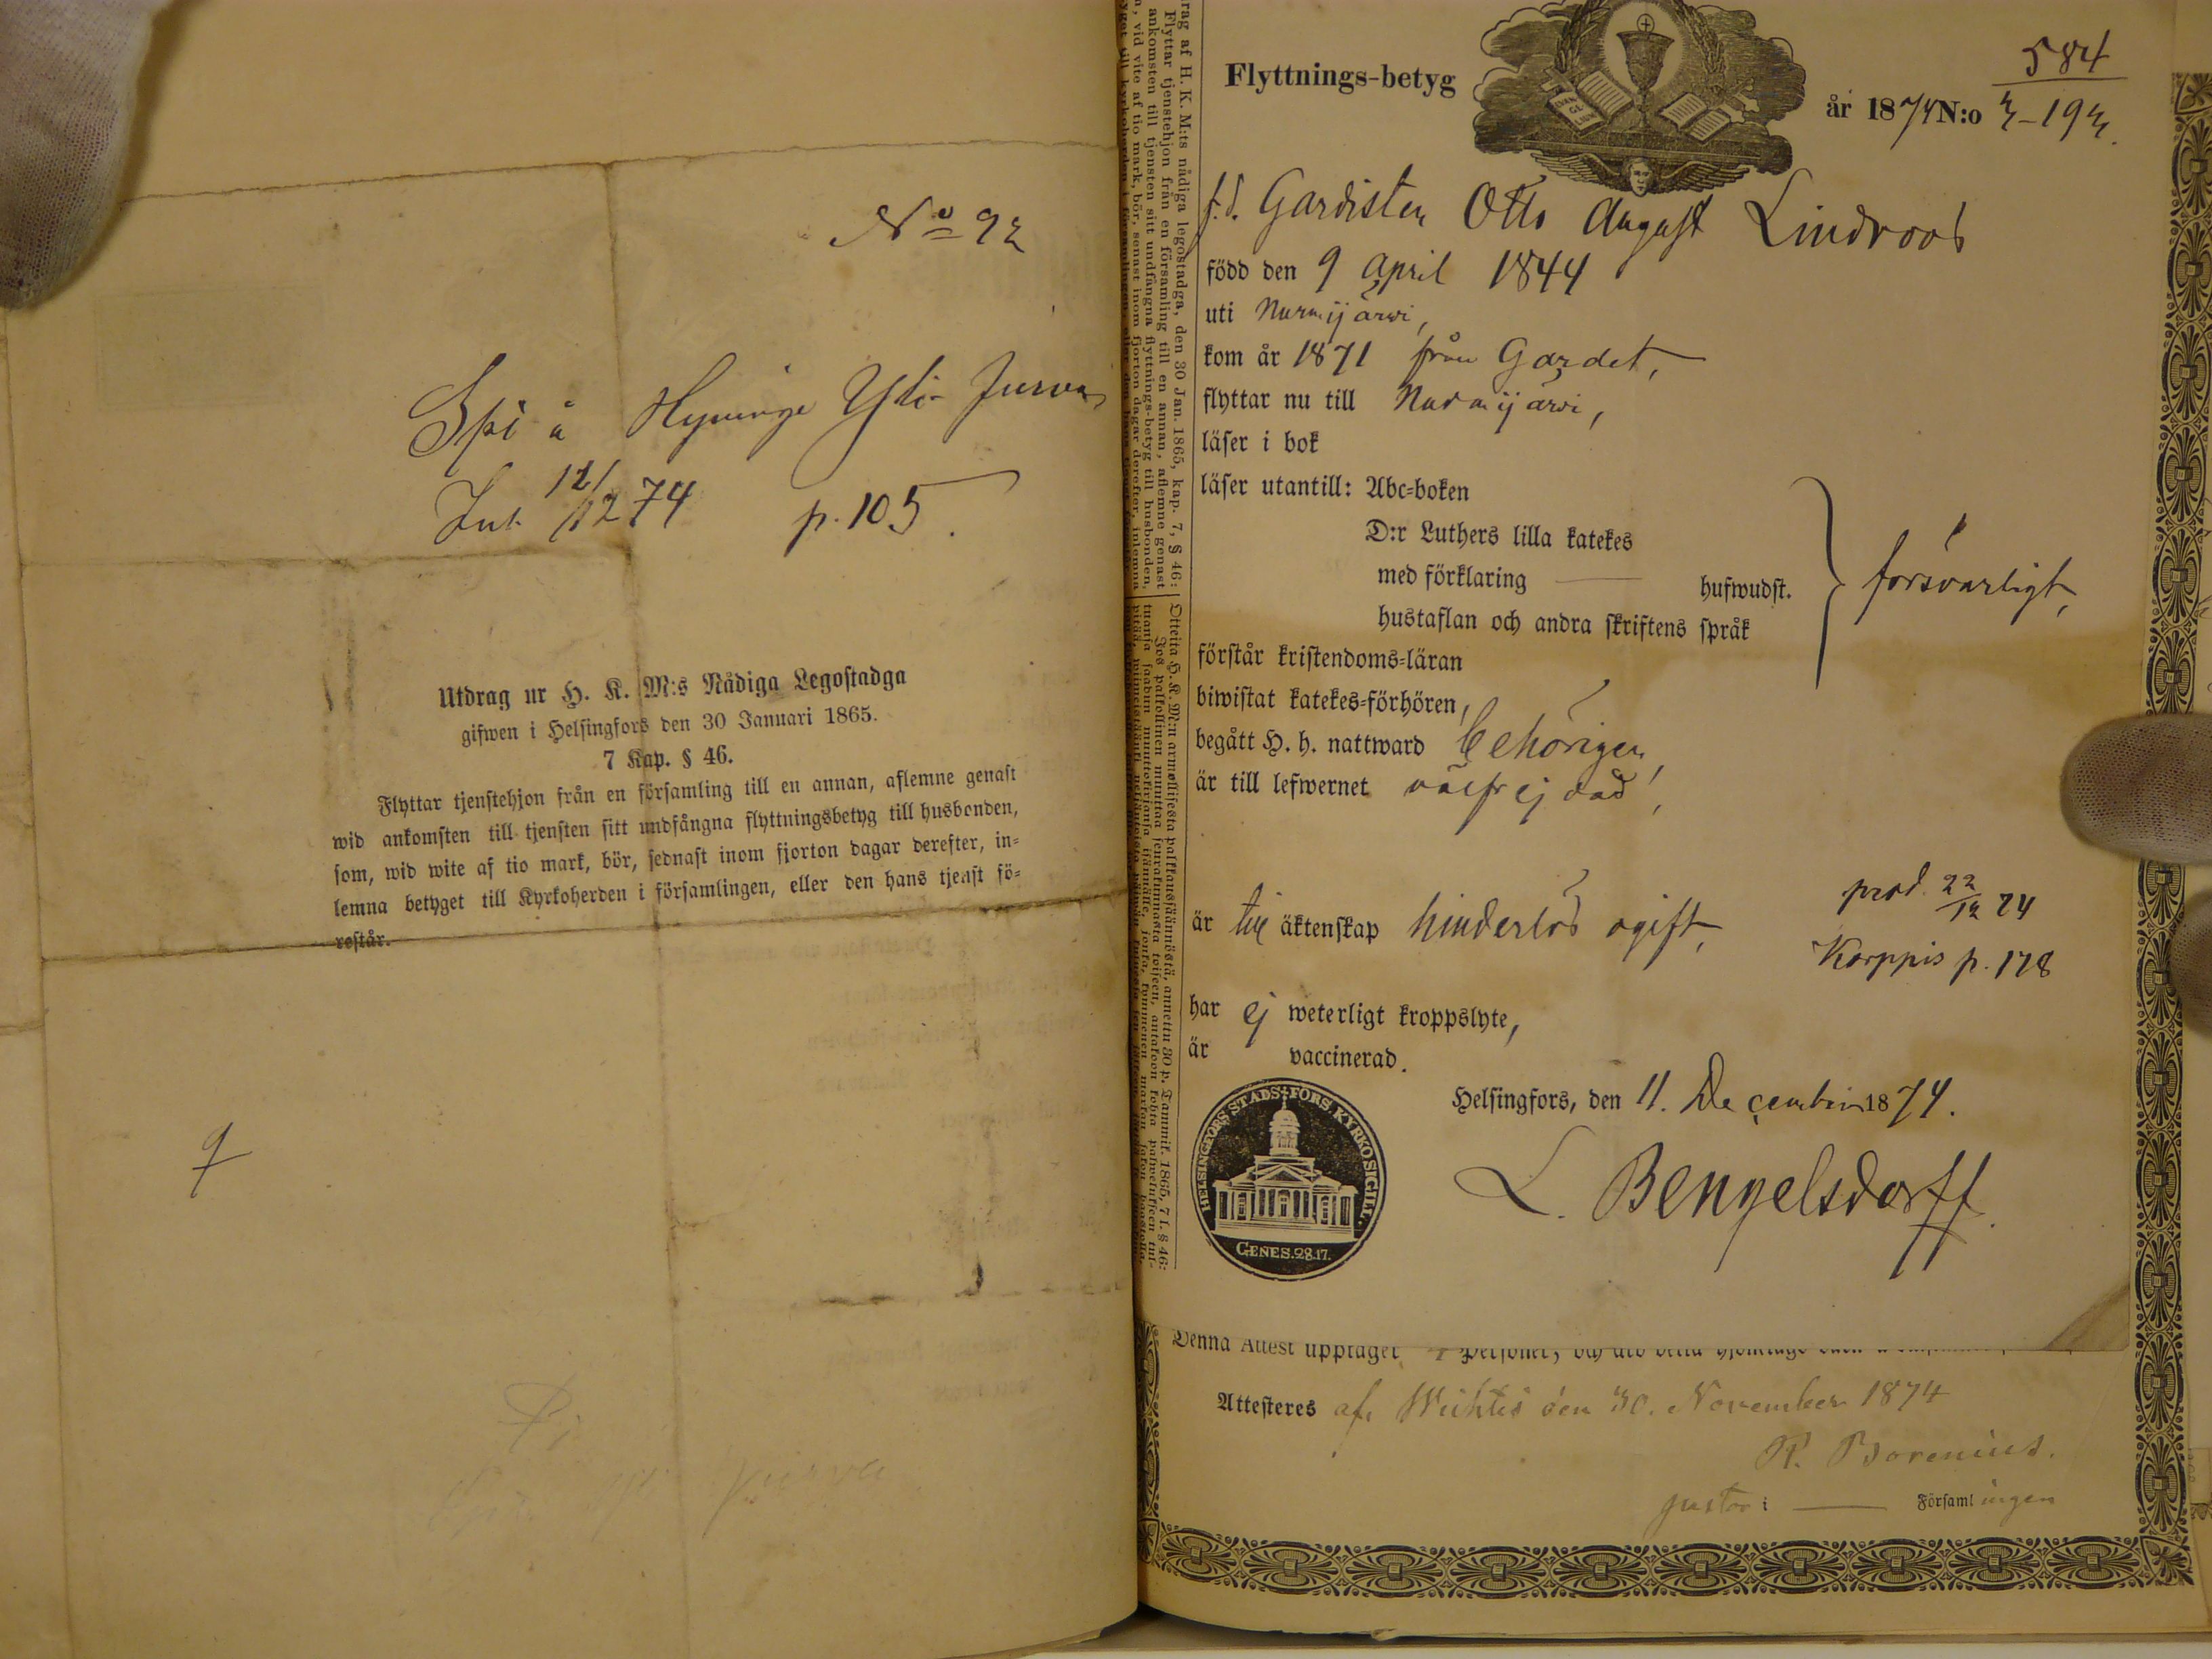 No 92
Spi å Hyvinge Yli-Jurva
Inl. 12/12 74 p. 105.
Utdrag ur H. K. M:s Nådiga Legostadga
gifwen i Helsingfors den 30 Januari 1865.
7 Kap. § 46.
Flyttar tjenstehjon från en församling till en annan, aflemne genast
wid ankomsten till tjensten sitt undfångna flyttningsbetyg till husbonden,
som, wid wite af tio mark, bör, sednast inom fjorton dagar derefter, in-
lemna betyget till Kyrkoherden i församlingen, eller den hans tjenst fö-
restår.
Jurva
H. K. M:ts nådiga legostadga, den 30 Jan. 1865, kap. 7, § 46:
Flyttar tjenstehjon från en församling till en annan, aflemne genast
ankomsten till tjensten sitt undfångna flyttnings-betyg till husbonden,
vid vite af tio mark, bör, senast inom fjorton dagar derefter, inlemna
Flyttnings-betyg
år 1874 N:o
584
f.d. Gardisten Otto August Lindroos
född den 9 April 1844
uti Nurmijärwi,
kom år 1871 från Gardet,
flyttar nu till Nurmijärwi,
läser i bok
läser utantill: Abc-boken
D:r Luthers lilla katekes
med förklaring hufwudst.
hustaflan och andra skriftens språk
försvarligt,
förstår kristendoms-läran
biwistat katekes-förhören,
begått H. h. nattward behörigen,
är till lefwernet välfrejdad,
är till äktenskap hinderlös ogift,
prod. 22/12 74
Korppis p. 178
har ej weterligt kroppslyte,
är vaccinerad.
Helsingfors, den 11. December 1874.
L. Bengelsdorff.
HELSINGFORS STADS FÖRS. KYRKOSIGILL.
GENES. 28.17.
Denna Attest upptager personer,
Attesteres af, Wichtis den 30. November 1874
R. Borenius.
pastor i Församlingen